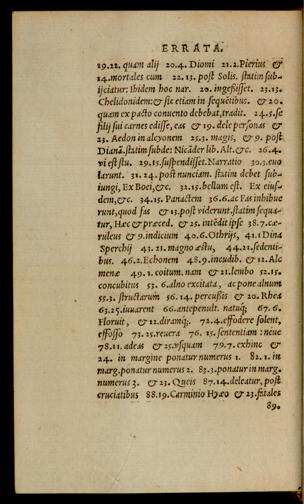 ERRATA.
19.22. quam alij 20.4. Diomi 21.2. Pierius &
14. mortales cum 22.13. post Solis. statim sub-
ijciatur: ibidem hoc nar. 20. ingeßisset. 23.13.
Chelidonidem: & sic etiam in sequẽtibus. & 20.
quam ex pacto conuento debebat, tradit. 24.5. se
filij sui carnes edisse, eas & 19. dele personas &
23. Aedon in alcyonem 25.3. magis, & 9. post
Dianã. statim subde: Nicãder lib. Alt. &c. 26.4.
vi est stu. 29.15. suspendisset. Narratio 30.3. euo
larunt. 31.24. post nunciam. statim debet sub-
iungi, Ex Boci, &c. 32.15. bellum est. Ex eius-
dem, &c. 34.15. Panactem 36.6. ac Fas inhibue
runt, quod fas & 13. post viderunt. statim sequa-
tur, Hæc & præced. & 25. intẽdit ipse 38.7. cæ-
ruleus & 9. indicium 40.6. Othrijs, 41.1 Dina
Sperchij 43.21. magno æstu, 44.21. sedenti-
bus. 46.2. Echonem 48.9. incudib. & 12. Alc
menæ 49.1. coitum. nam & 21. lembo 52.15.
concubitus 53.6. alno excitata, ac pone alnum
55.3. structarum 56.14. percußis & 20. Rhea
63.25. iuuarent 66. antepenult. natuq; 67.6.
Floruit, & 12. diramq;. 72.4. effodere solent,
effosso 73.25. reuera 76.15. sententiam: neue
78.11. adeas & 25. vsquam 79.7. exhinc &
24. in margine ponatur numerus 1. 82.1. in
marg. ponatur numerus 2. 83.3. ponatur in marg.
numerus 3. & 23. Queis 87.14. deleatur, post
cruciatibus 88.19. Carminio Hyæo & 23. fatales
89.